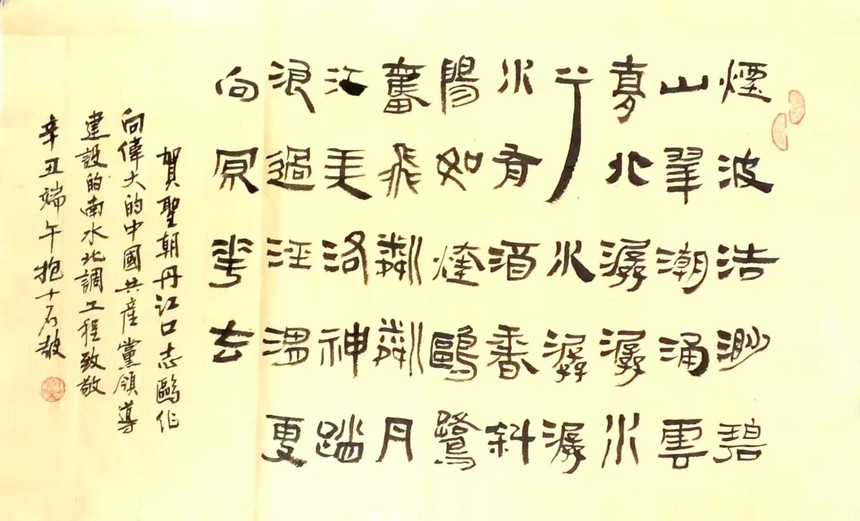 煙波浩渺碧
山翠潮涌雲
夢北潺潺水
水潺潺
水有酒香斜
陽如鷗鷺
奮飛粼粼月
江美洛神踏
浪過汪溫更
向原華去
賀聖朝丹江口志鷗作
向偉大的中國共產黨領導
建設的南水北調工程致敬
辛丑端午抱十石敬